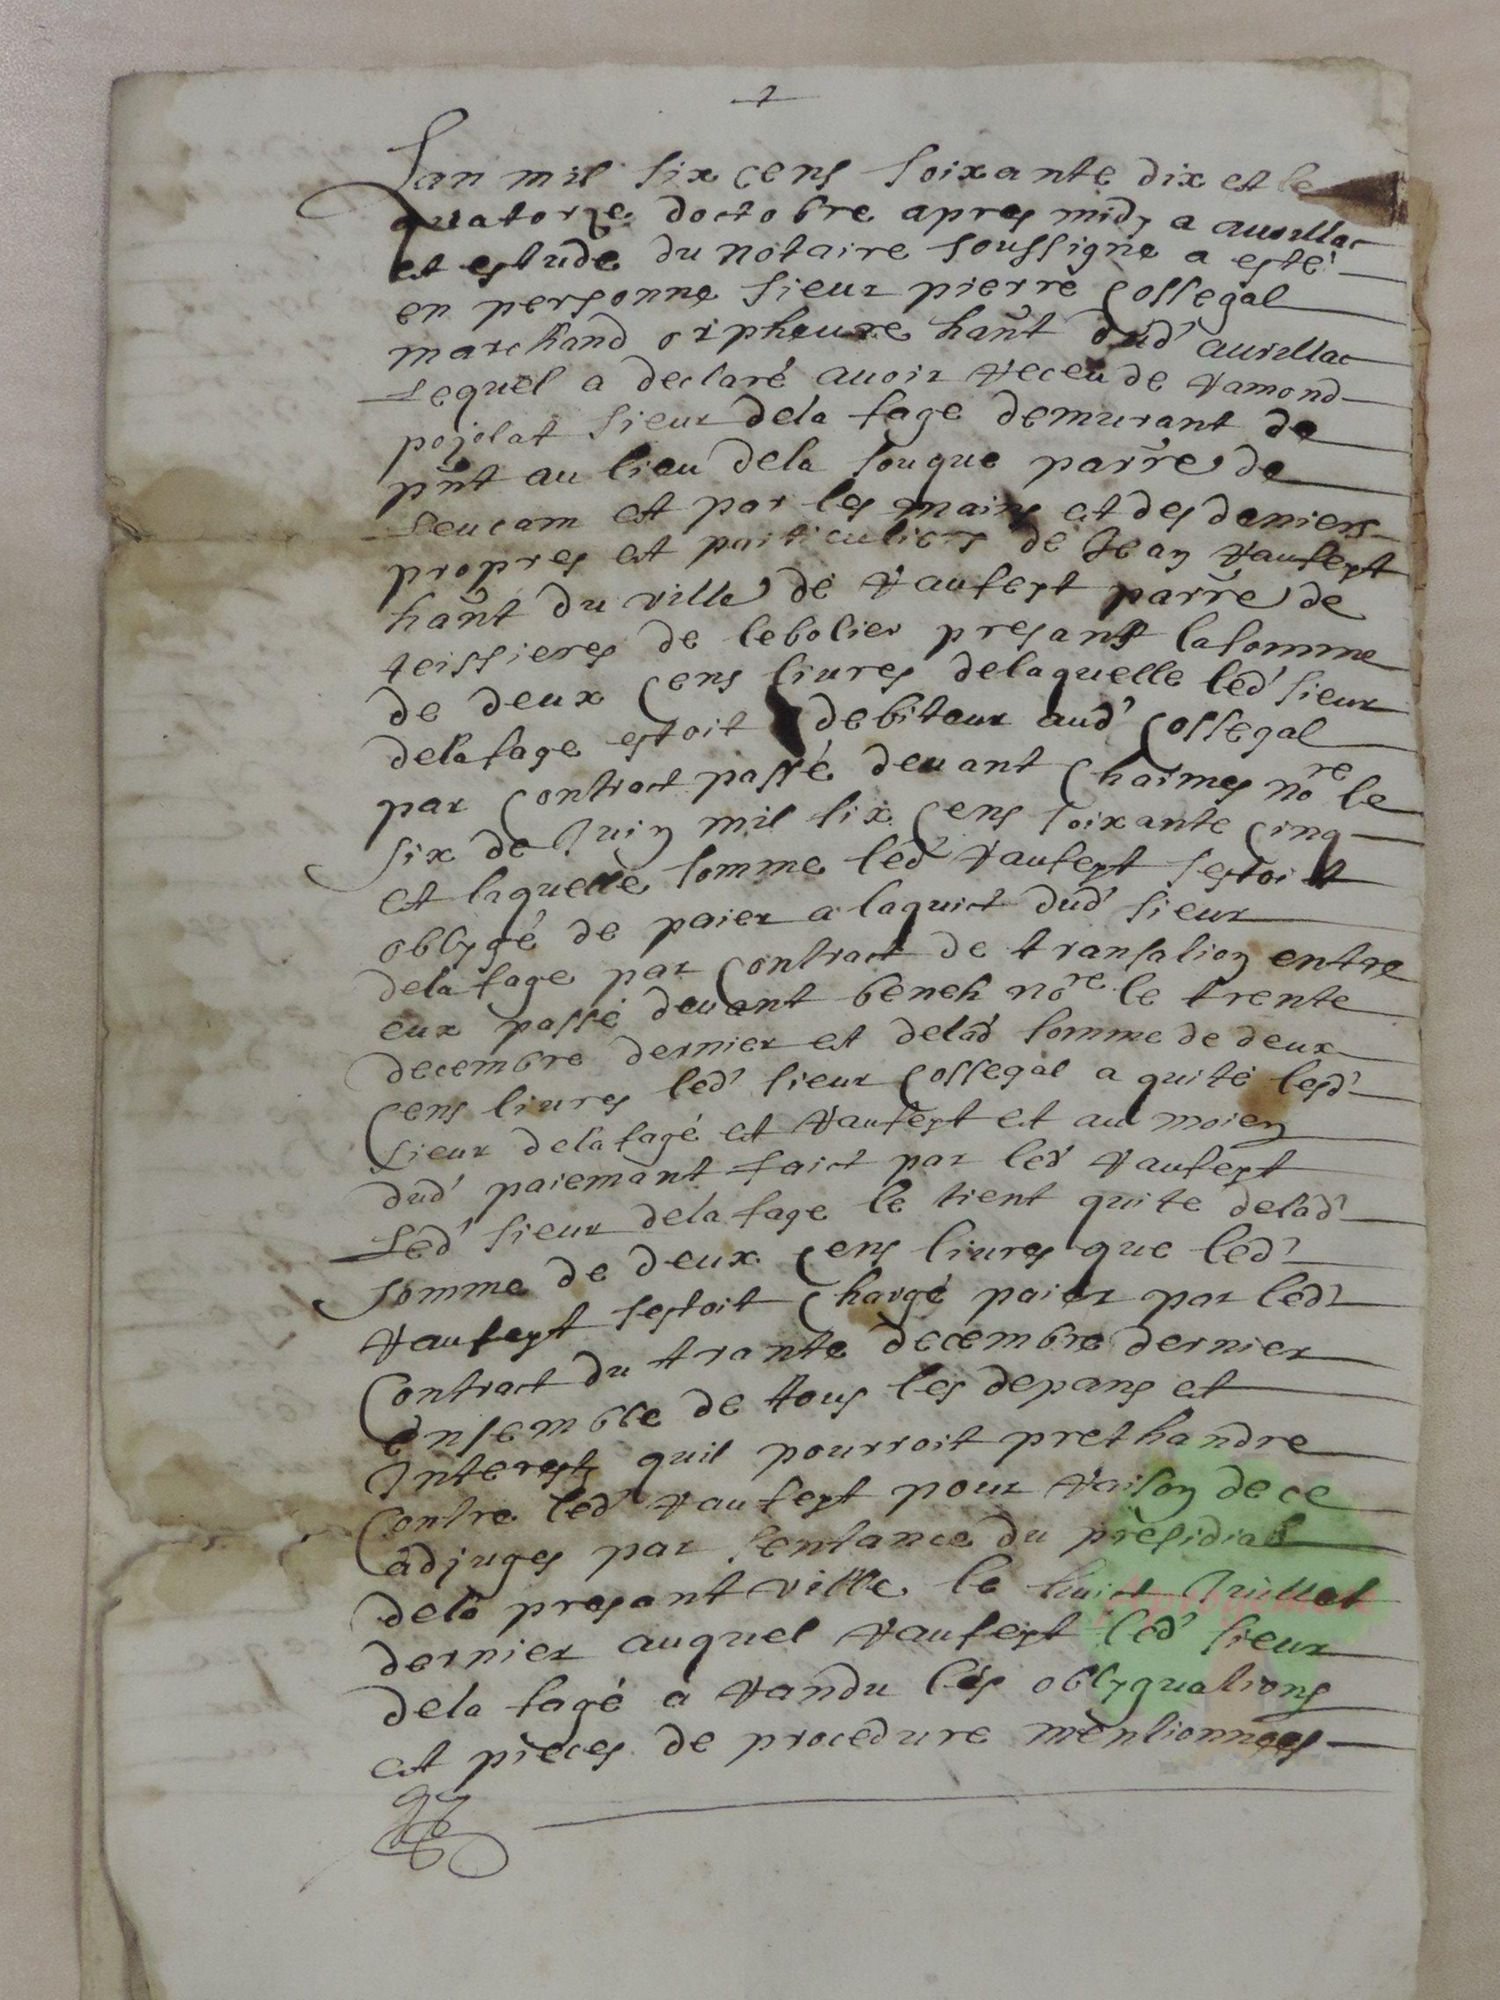 Lan mil six cens soixante dix et le
quatorze doctobre apres midy a aurillac
et estude du notaire soussigne a esté
en personne sieur pierre Cossegal
marchand orpheure hant dud' aurillac
Lequel a declaré auoir receu de ramond
pojolat sieur dela fage demurant de
pnt au lieu dela souque parre de
Leucam et par les mains et des deniers
propres et particuliers de Jean vaufept
hant du ville de vaufept parre de
teissieres de lebolier presant la somme
de deux Cens liures delaquelle led' sieur
delafage estoit debiteur aud' Cossegal
par Contract passé deuant Charmes nore le
six de Juin mil six Cens soixante Cinq
et laquelle somme led' vaufept sestoit
oblygé de paier a laquict dud' sieur
delafage par Contract de transation entre
eux passé deuant beneh nore le trente
decembre dernier et delad' somme de deux
Cens liures led' sieur Cossegal a quité lesd'
sieur delafagé et vaufept et au moien
dud' paiemant faict par led' vaufept
Led' sieur delafage le tient quite delad'
somme de deux Cens liures que led'
vaufept sestoit Chargé paier par led'
Contract du trante decembre dernier
ensemble de tous les depans et
Interests quil pourroit prethandre
Contre led' vaufept pour raison de ce
adjuges par sentance du presidial
dela presant ville le huict Juillet
dernier auquel vaufept led' sieur
dela fagé a randu les oblyquations
et pieces de procedure mentionnees